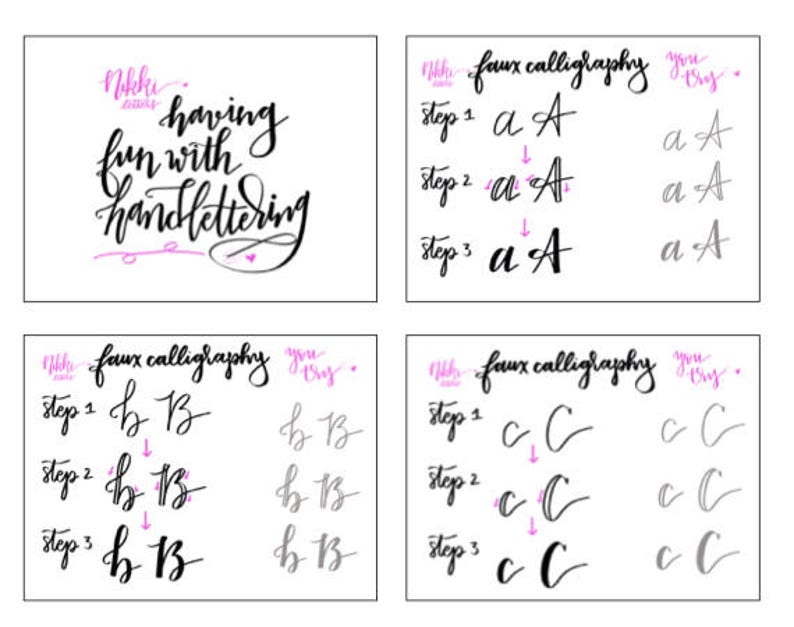 Nikki
letters
having
fun with
handlettering
Nikki
letters
faux calligraphy
you
try
step 1 a A a A
step 2 a A a A
step 3 a A a A
Nikki
letters
faux calligraphy
you
try
step 1 b B b B
step 2 b B b B
step 3 b B b B
Nikki
letters
faux calligraphy
you
try
step 1 c C c C
step 2 c C c C
step 3 c C c C